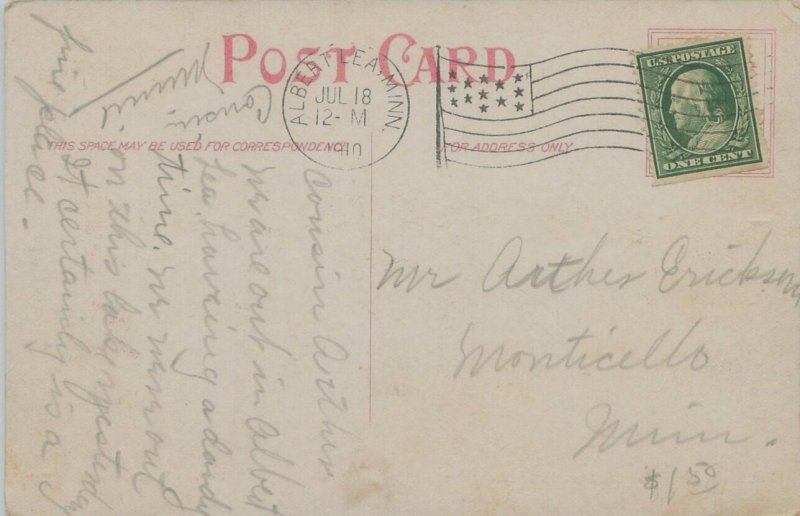 POST CARD
ALBERT LEA, MINN.
JUL 18
12- M
1910
U.S. POSTAGE
ONE CENT
THIS SPACE MAY BE USED FOR CORRESPONDENCE
FOR ADDRESS ONLY
Cousin Arther
We are out in Albert
Lea, having a dandy
time. We were out
on this lake yesterday
It certainly is a
fine place.
Cousin
Minnie
Mr Arther Erickson
Monticello
Minn.
$1.50